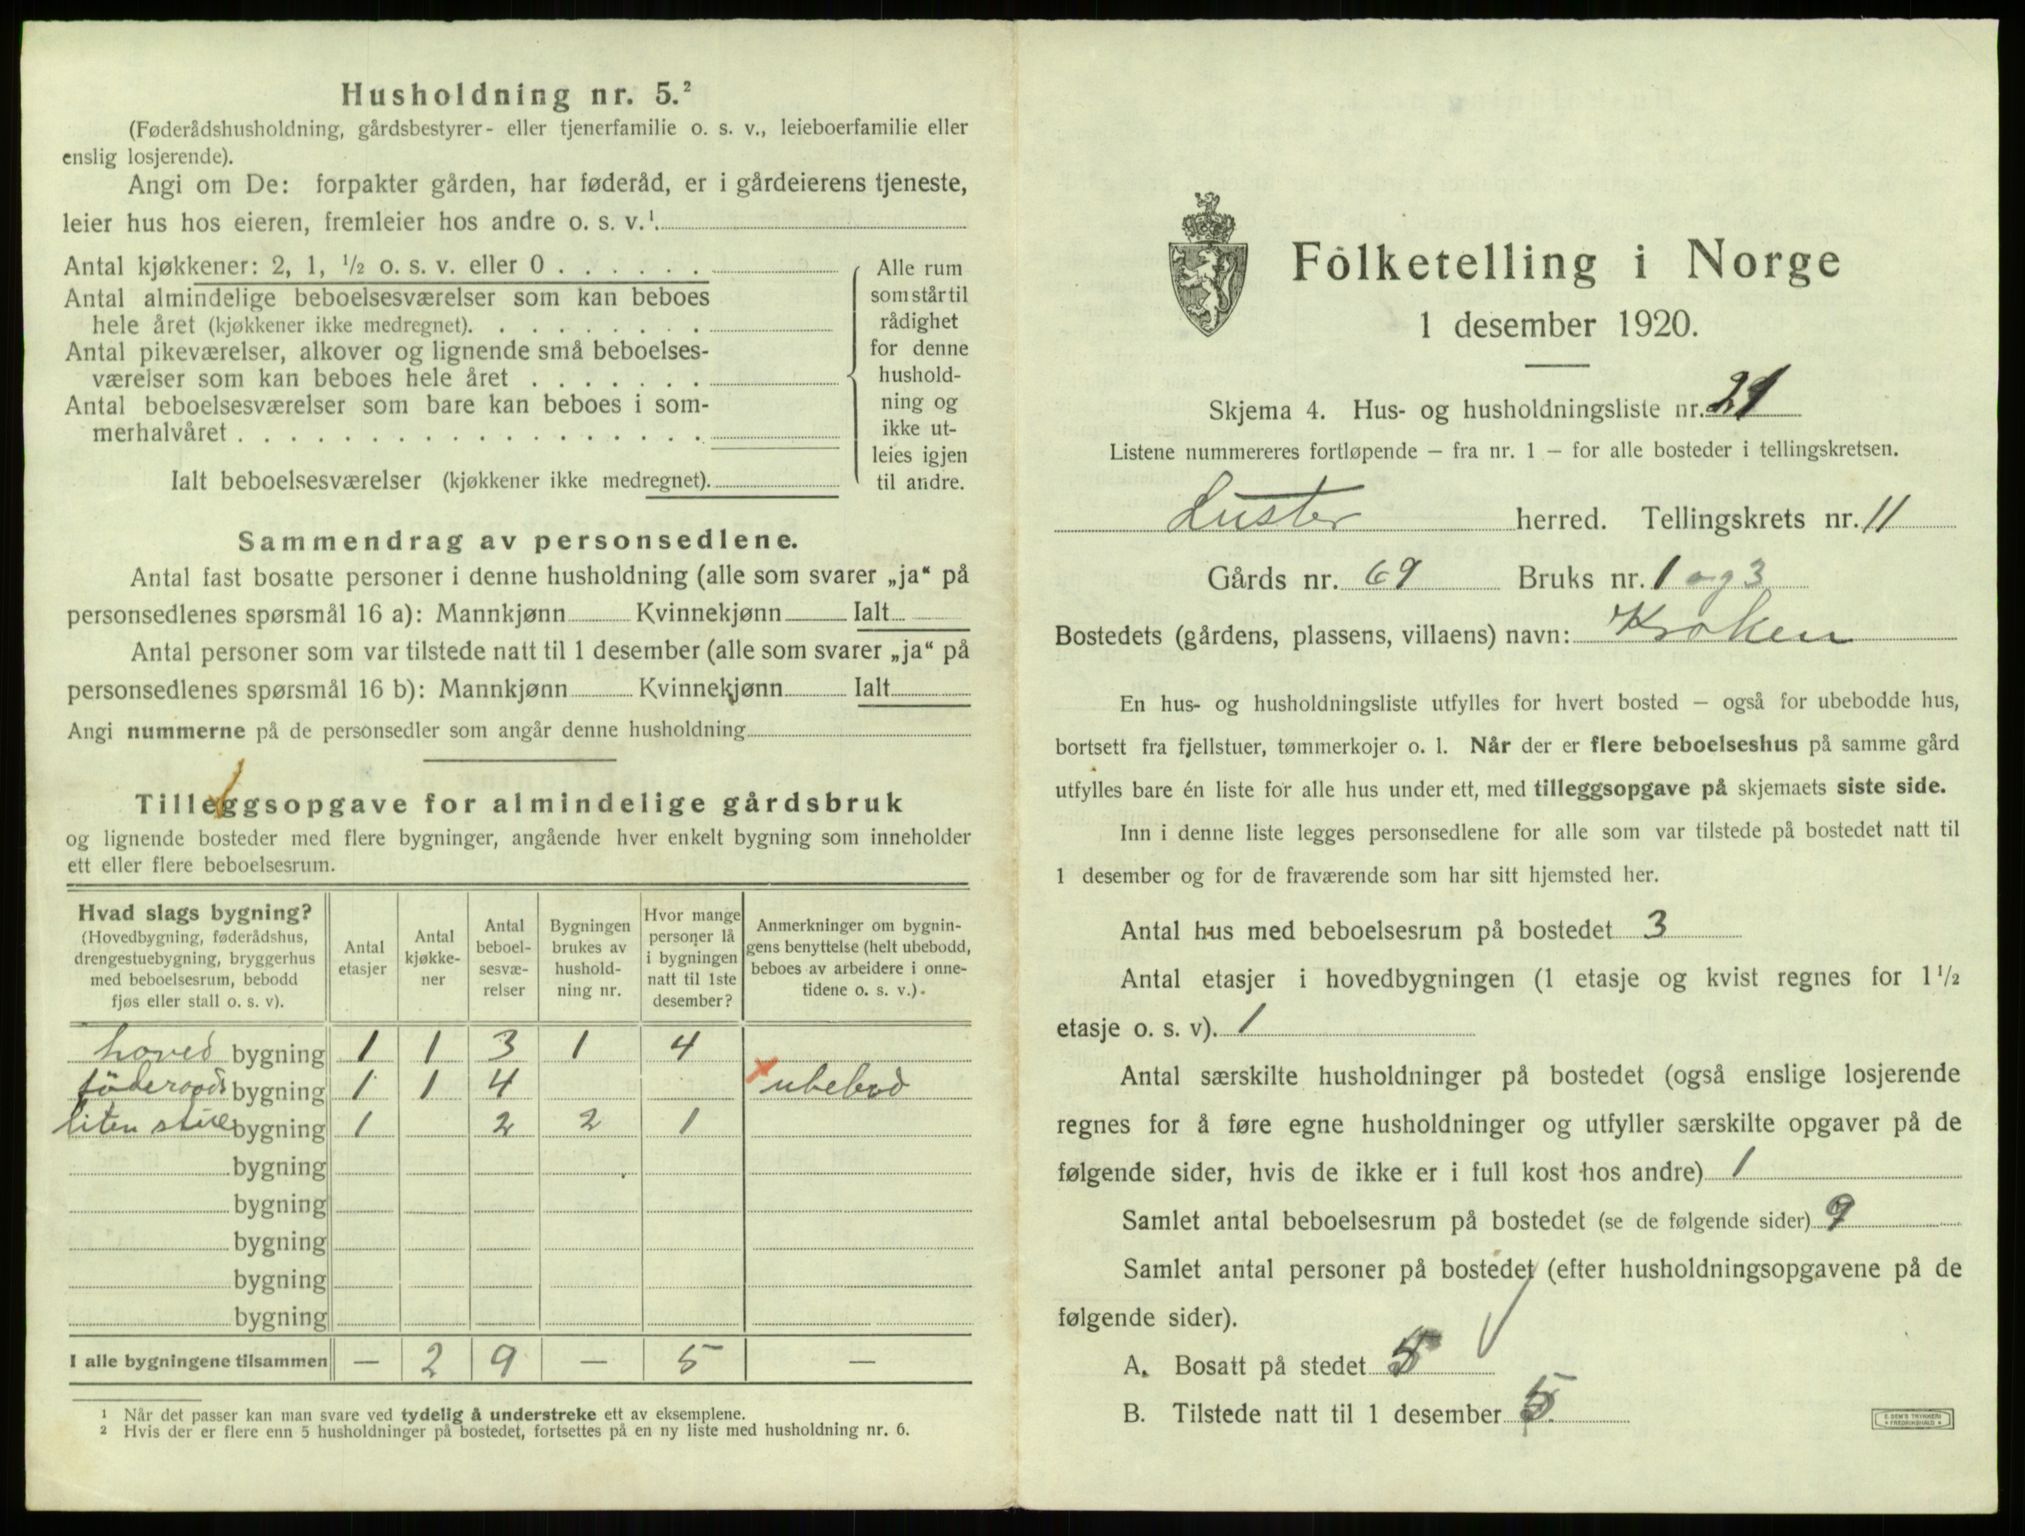 Husholdning nr. 5.²
(Føderådshusholdning, gårdsbestyrer- eller tjenerfamilie o. s. v., leieboerfamilie eller
enslig losjerende).
Angi om De: forpakter gården, har føderåd, er i gårdeierens tjeneste,
leier hus hos eieren, fremleier hos andre o. s. v.¹
Antal kjøkkener: 2, 1, ½ o. s. v. eller 0 . . . . . .
Antal almindelige beboelsesværelser som kan beboes
hele året (kjøkkener ikke medregnet). . . . . . . . .
Antal pikeværelser, alkover og lignende små beboelses-
værelser som kan beboes hele året . . . . . . .
Antal beboelsesværelser som bare kan beboes i som-
merhalvåret . . . . . . . . . . . . . . . . . .
Ialt beboelsesværelser (kjøkkener ikke medregnet).
Alle rum
som står til
rådighet
for denne
hushold-
ning og
ikke ut-
leies igjen
til andre.
Sammendrag av personsedlene.
Antal fast bosatte personer i denne husholdning (alle som svarer „ja“ på
personsedlenes spørsmål 16 a): Mannkjønn Kvinnekjønn Ialt
Antal personer som var tilstede natt til 1 desember (alle som svarer „ja“ på
personsedlenes spørsmål 16 b): Mannkjønn Kvinnekjønn Ialt
Angi nummerne på de personsedler som angår denne husholdning
Tilleggsopgave for almindelige gårdsbruk
og lignende bosteder med flere bygninger, angående hver enkelt bygning som inneholder
ett eller flere beboelsesrum.
Hvad slags bygning?
(Hovedbygning, føderådshus,
drengestuebygning, bryggerhus
med beboelsesrum, bebodd
fjøs eller stall o. s. v).
Antal
etasjer
Antal
kjøkke-
ner
Antal
beboel-
sesvæ-
relser
Bygningen
brukes av
hushold-
ning nr.
Hvor mange
personer lå
i bygningen
natt til 1ste
desember?
Anmerkninger om bygnin-
gens benyttelse (helt ubebodd,
beboes av arbeidere i onne-
tidene o. s. v.).
hoved bygning 1 1 3 1 4
föderaads bygning 1 1 4 ubebod
liten stue bygning 1 2 2 1
bygning
bygning
bygning
bygning
bygning
I alle bygningene tilsammen — 2 9 — 5 —
¹ Når det passer kan man svare ved tydelig å understreke ett av eksemplene.
² Hvis der er flere enn 5 husholdninger på bostedet, fortsettes på en ny liste med husholdning nr. 6.
Folketelling i Norge
1 desember 1920.
Skjema 4. Hus- og husholdningsliste nr. 21
Listene nummereres fortløpende – fra nr. 1 – for alle bosteder i tellingskretsen.
Luster herred. Tellingskrets nr. 11
Gårds nr. 69 Bruks nr. 1 og 3
Bostedets (gårdens, plassens, villaens) navn: Kroken
En hus- og husholdningsliste utfylles for hvert bosted – også for ubebodde hus,
bortsett fra fjellstuer, tømmerkojer o. l. Når der er flere beboelseshus på samme gård
utfylles bare én liste for alle hus under ett, med tilleggsopgave på skjemaets siste side.
Inn i denne liste legges personsedlene for alle som var tilstede på bostedet natt til
1 desember og for de fraværende som har sitt hjemsted her.
Antal hus med beboelsesrum på bostedet 3
Antal etasjer i hovedbygningen (1 etasje og kvist regnes for 1½
etasje o. s. v). 1
Antal særskilte husholdninger på bostedet (også enslige losjerende
regnes for å føre egne husholdninger og utfyller særskilte opgaver på de
følgende sider, hvis de ikke er i full kost hos andre) 1
Samlet antal beboelsesrum på bostedet (se de følgende sider) 9
Samlet antal personer på bostedet (efter husholdningsopgavene på de
følgende sider).
A. Bosatt på stedet 5
B. Tilstede natt til 1 desember 5
E. SEM'S TRYKKERI
FREDRIKSHALD